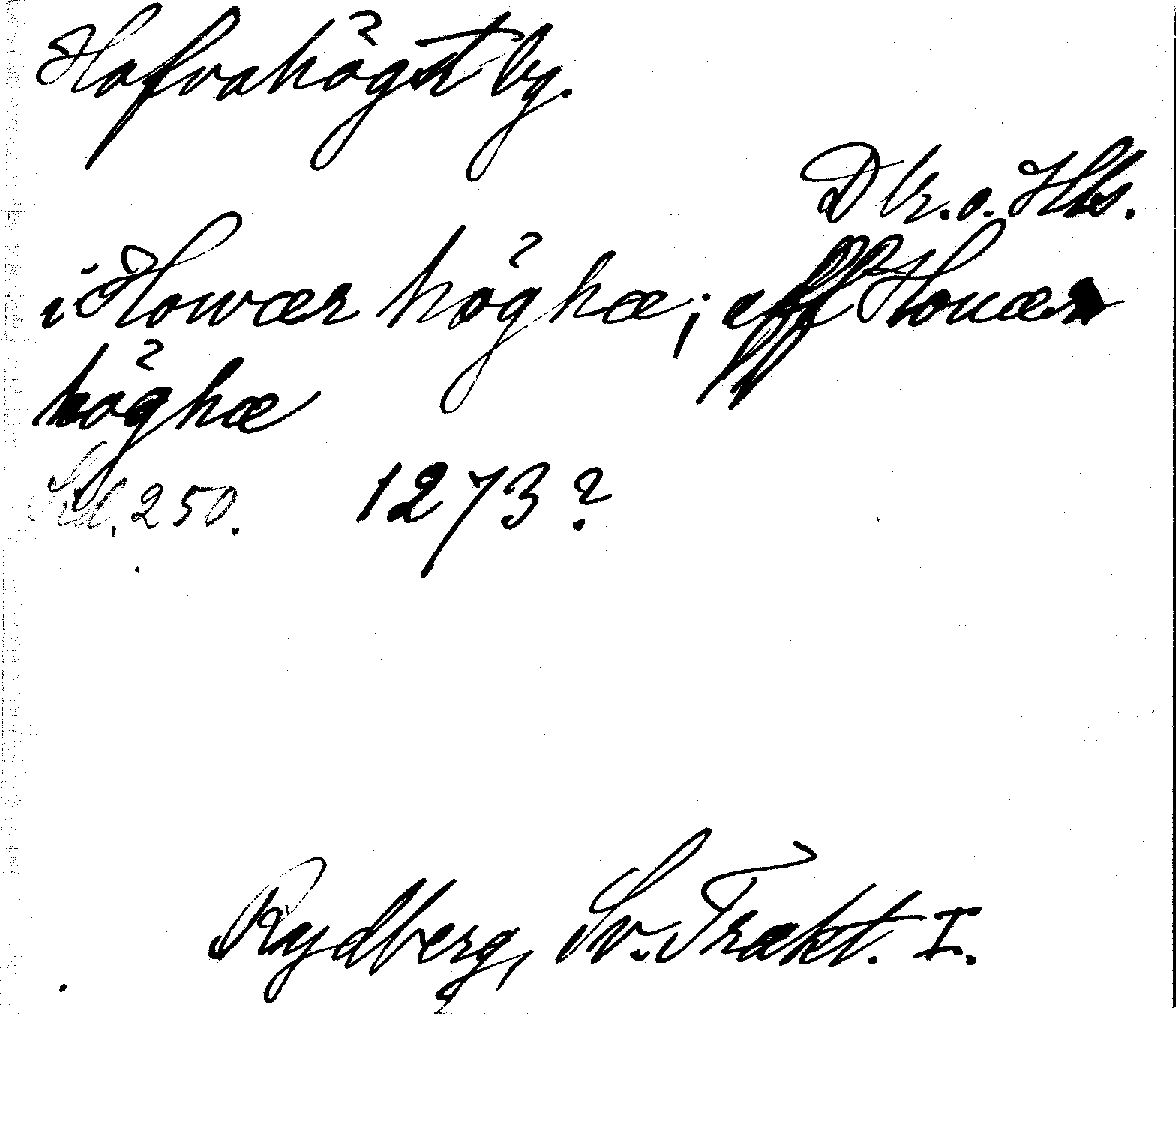 Hafvahögst by.
Dlr. o. Hbs.
i Howær höghæ; aff Houær
höghæ
Sid. 250. 1273?
Rydberg, Sv. Trakt. I.